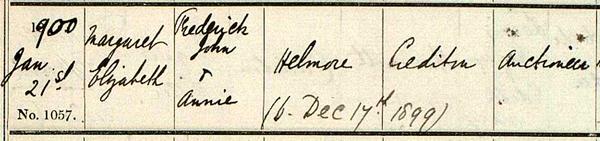 1900
Jan. 21st
No. 1057.
Margaret Elizabeth
Frederick John & Annie
Helmore
Crediton
Auctioneer
(b. Dec 17th 1899)